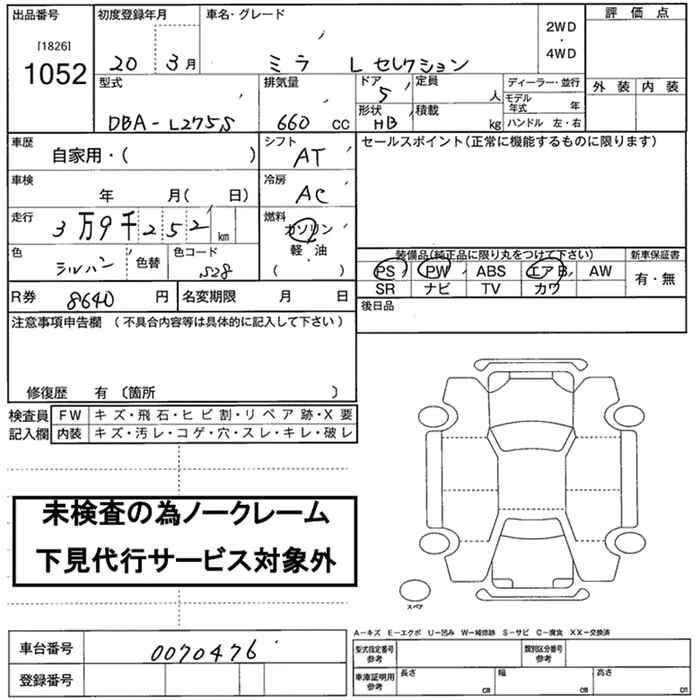 出品番号 初度登録年月 車名・グレード 2WD ・ 4WD 評価点
[1826] 1052 20 3月 ミラ L セレクション
外装 内装
型式 排気量 ドア 定員 ディーラー・並行
DBA-L275S 660 cc 5 人 モデル年式 年
形状 積載 HB kg ハンドル 左・右
車歴 シフト セールスポイント(正常に機能するものに限ります)
自家用・( ) AT
車検 冷房
年 月( 日) AC
走行 燃料
3万9千252km ガソリン
軽・油
( )
色 シルバー 色替 色コード S28
装備品(純正品に限り丸をつけて下さい) 新車保証書
PS PW ABS エアB AW 有・無
SR ナビ TV カワ
R券 8640円 名変期限 月 日
後日品
注意事項申告欄 (不具合内容等は具体的に記入して下さい)
修復歴 有 (箇所 )
検査員 FW キズ・飛石・ヒビ割・リペア跡・X要
記入欄 内装 キズ・汚レ・コゲ・穴・スレ・キレ・破レ
未検査の為ノークレーム
下見代行サービス対象外
スペア
A-キズ E-エクボ U-凹み W-補修跡 S-サビ C-腐食 XX-交換済
車台番号 0070476 型式指定番号 参考 類別区分番号 参考
登録番号 車庫証明用 参考 長さ cm 幅 cm 高さ cm